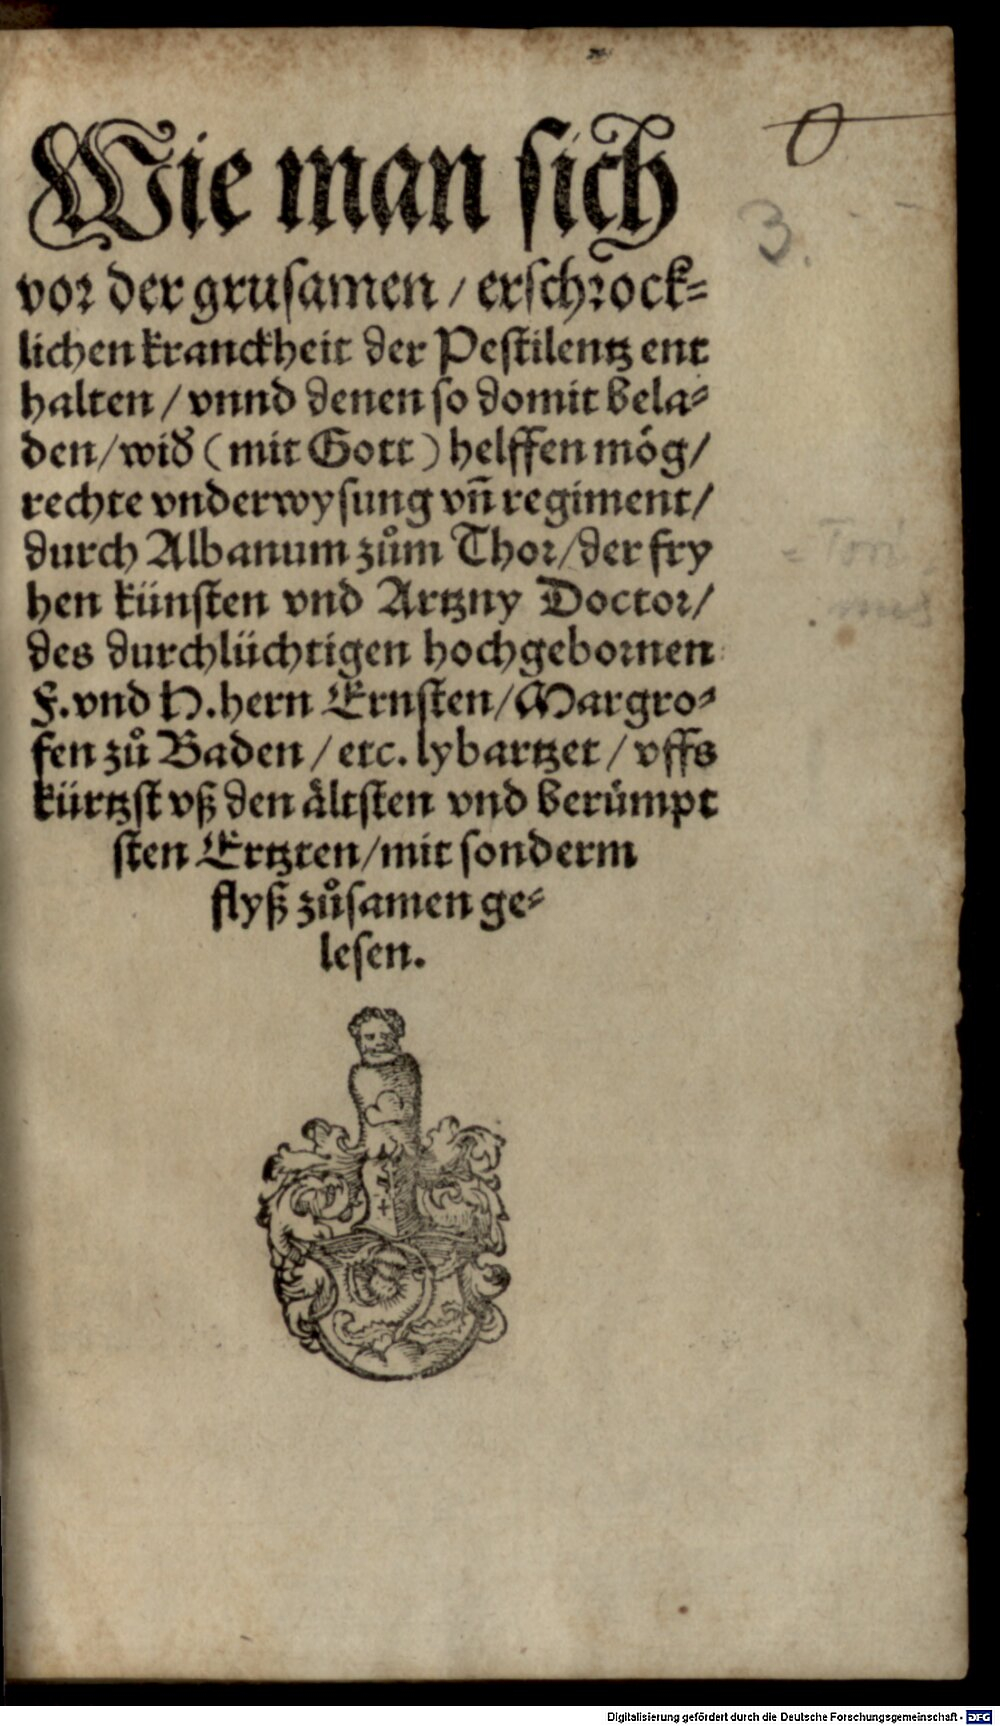 Wie man sich
vor der grusamen / erschrock-
lichen kranckheit der Pestilentz ent
halten / vnnd denen so domit bela-
den / wid̕ (mit Gott) helffen mög /
rechte vnderwysung vñ regiment /
durch Albanum zům Thor / der fry
hen künsten vnd Artzny Doctor /
des durchlüchtigen hochgebornen
F. vnd H. hern Ernsten / Margro-
fen zů Baden / etc. lybartzet / vffs
kürtzst vß den ältsten vnd berümpt
sten Ertzten / mit sonderm
flyß zůsamen ge-
lesen.
0
3.
Digitalisierung gefördert durch die Deutsche Forschungsgemeinschaft - DFG